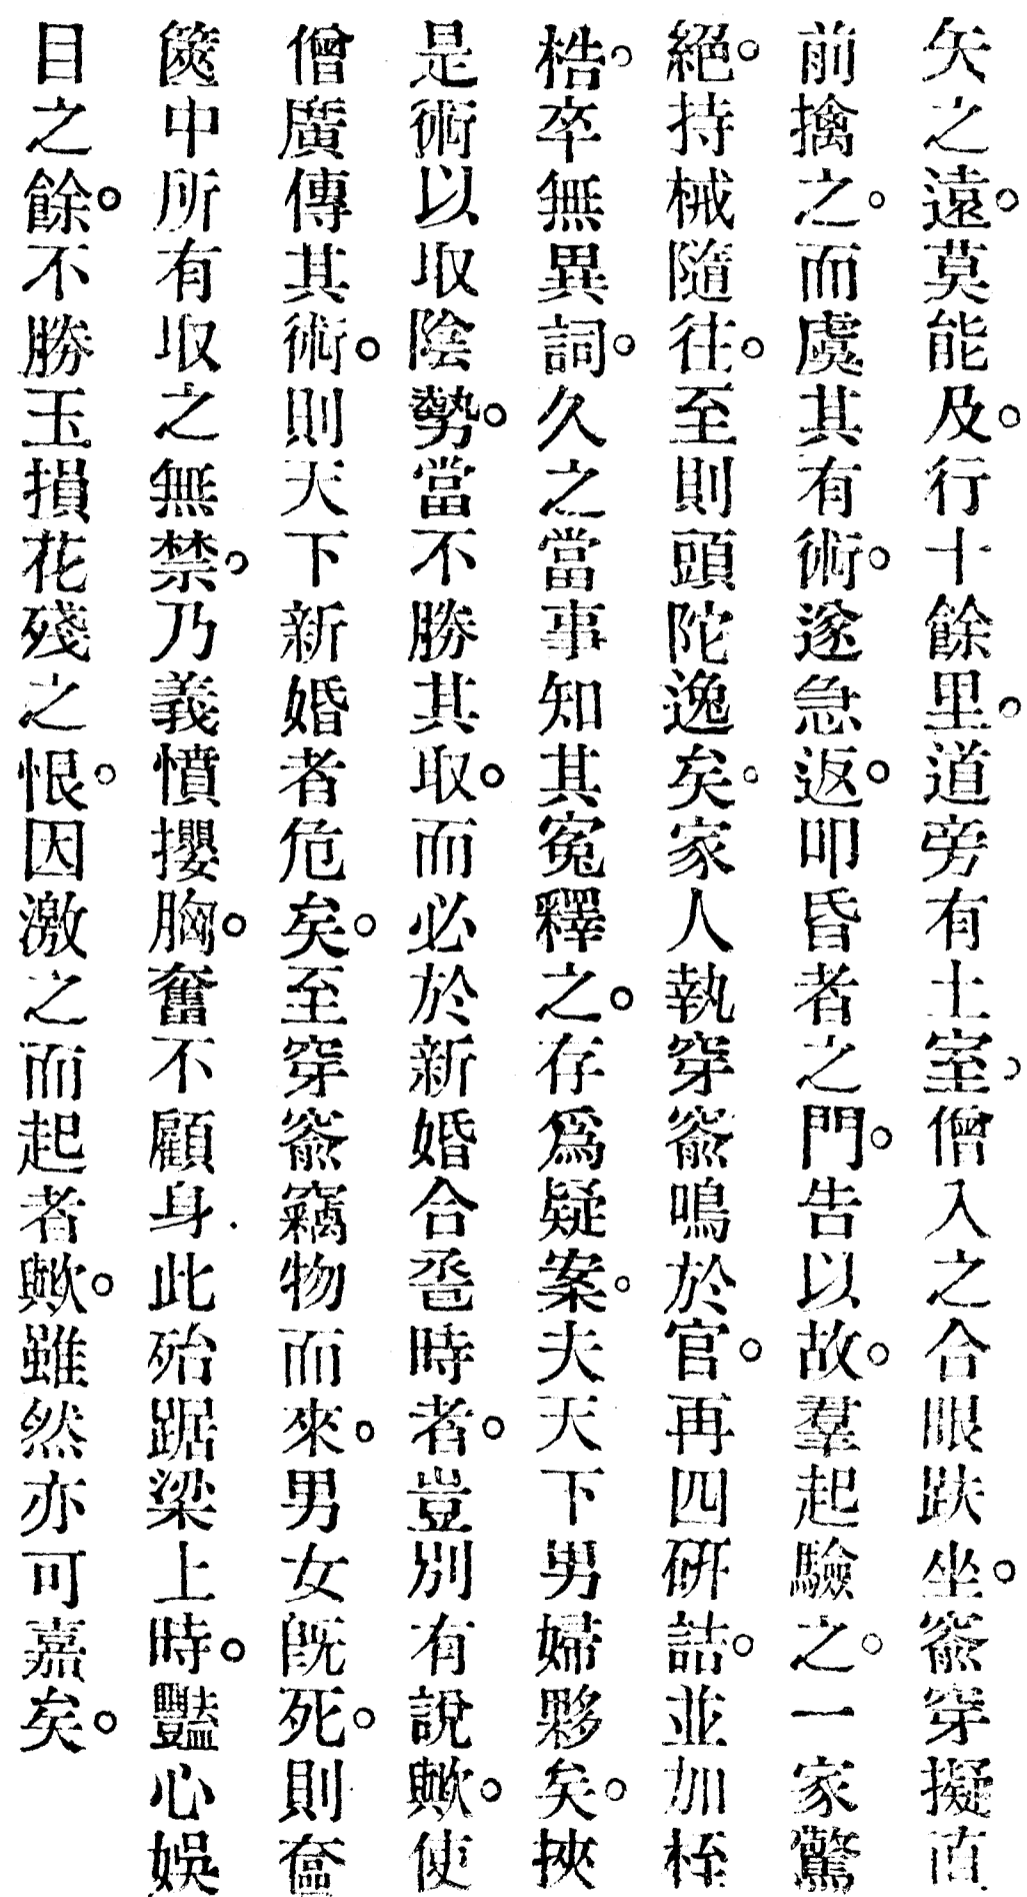 矢之遠。莫能及。行十餘里。道旁有土室。僧入之合眼趺坐。窬穿擬直
前擒之。而虞其有術。遂急返。叩昏者之門。告以故。羣起驗之。一家驚
絕。持械隨往。至則頭陀逸矣。家人執穿窬鳴於官。再四硏詰。並加桎
梏。卒無異詞。久之當事知其寃釋之。存爲疑案。夫天下男婦夥矣。挾
是術以取陰勢。當不勝其取。而必於新婚合卺時者。豈別有說歟。使
僧廣傳其術。則天下新婚者危矣。至穿窬竊物而來。男女旣死。則奩
篋中所有取之無禁。乃義憤攖胸。奮不顧身。此殆踞梁上時。豔心娛
目之餘。不勝玉損花殘之恨。因激之而起者歟。雖然亦可嘉矣。